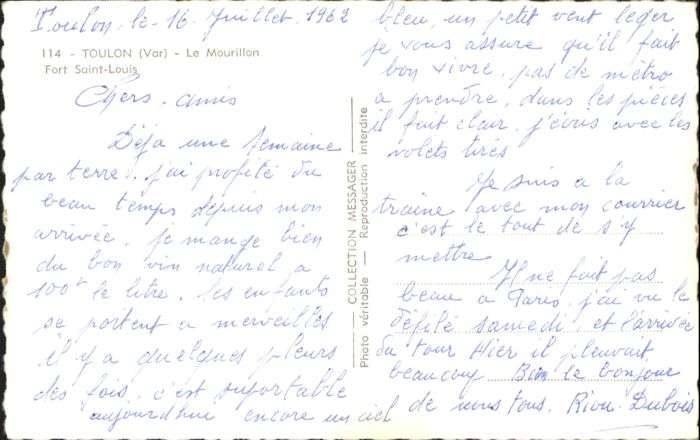 Toulon. le. 16. Juillet. 1962
114 - TOULON (Var) - Le Mourillon
Fort Saint-Louis
Chers. amis
Déja une semaine
par terre. j'ai profité du
beau temps depuis mon
arrivée. je mange bien
du bon vin naturel a
100f le litre. les enfants
se portent a merveilles
il y a quelques pleurs
des fois. c'est suportable
aujourd'hui encore un ciel
COLLECTION MESSAGER
Photo véritable - Reproduction interdite
bleu, un petit vent leger
je vous assure qu'il fait
bon vivre. pas de métro
a prendre, dans les pièces
il fait clair. j'écris avec les
volets tirés
Je suis a la
traine avec mon courrier
c'est le tout de s'y
mettre
Il ne fait pas
beau a Paris. j'ai vu le
défilé samedi. et l'arrivée
du tour Hier il pleuvait
beaucoup Bien le bonjour
de nous tous. Riou. Dubois